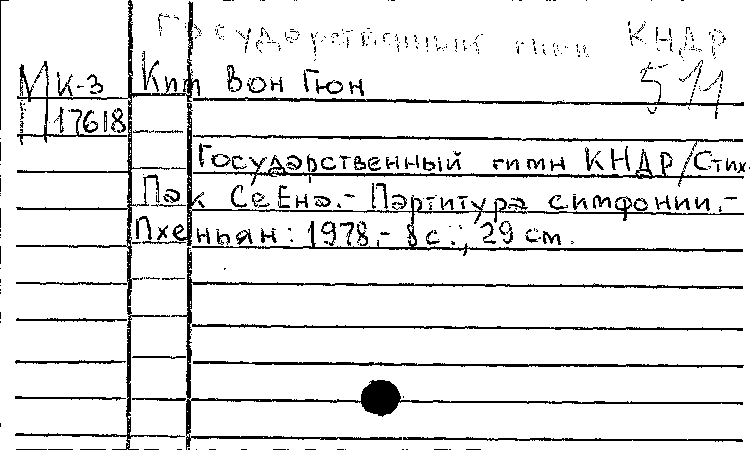 Государственный гимн КНДР
МК-3 Ким Вон Гюн 511
П17618
Государственный гимн КНДР/Стих.
Пак Се Ена.- Партитура симфонии.-
Пхеньян: 1978.- 8 с.; 29 см.